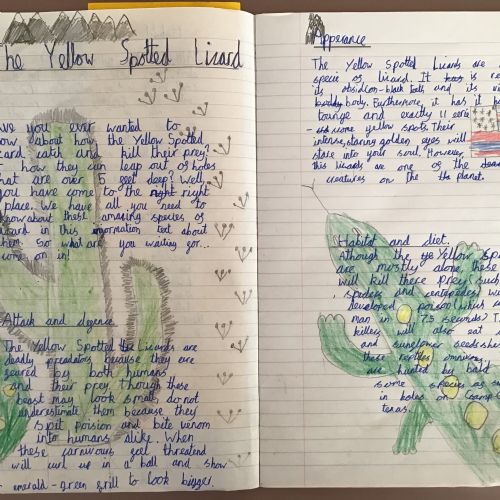 The Yellow Spotted Lizard
ave you ever wanted to
now about how the Yellow Spotted
izard catch and kill their prey?
how they can leap out of holes
hat are over 5 feet deep? Well,
you have come to the right right
place. We have all you need to
now about these amazing species of
izard in this information text about
them. So what are you waiting for...
come on in!
Attack and defence
The Yellow Spotted the Lizards are
deadly predators because they are
feared by both humans
and their prey. though these
beast may look small do not
underestimate them because they
spit poision and bite venom
into humans alike. When
these carnivous get threatend
will curl up in a ball and show
emerald-green grill to look bigger.
Apperance
The Yellow Spotted Lizards are
specie of lizard. It is re
its obsidian-black teeth and its vi
body. Furthermore, it has it
tounge and exactly 11 eerie
some yellow spots. Their
intense, staring golden eyes will
stare into your soul. However
this lizards are one of the dea
creatures on the the planet.
Habitat and diet.
Although the Yellow Spo
are mostly alone, these
will kill there prey (such
spiders and centipedes) wi
developed poison (which
man in 75 seconds) T
killers will also eat
and sunflower seedshe
these reptiles omnivou
are hunted by bald
some species as
in holes on Camp G
texas.